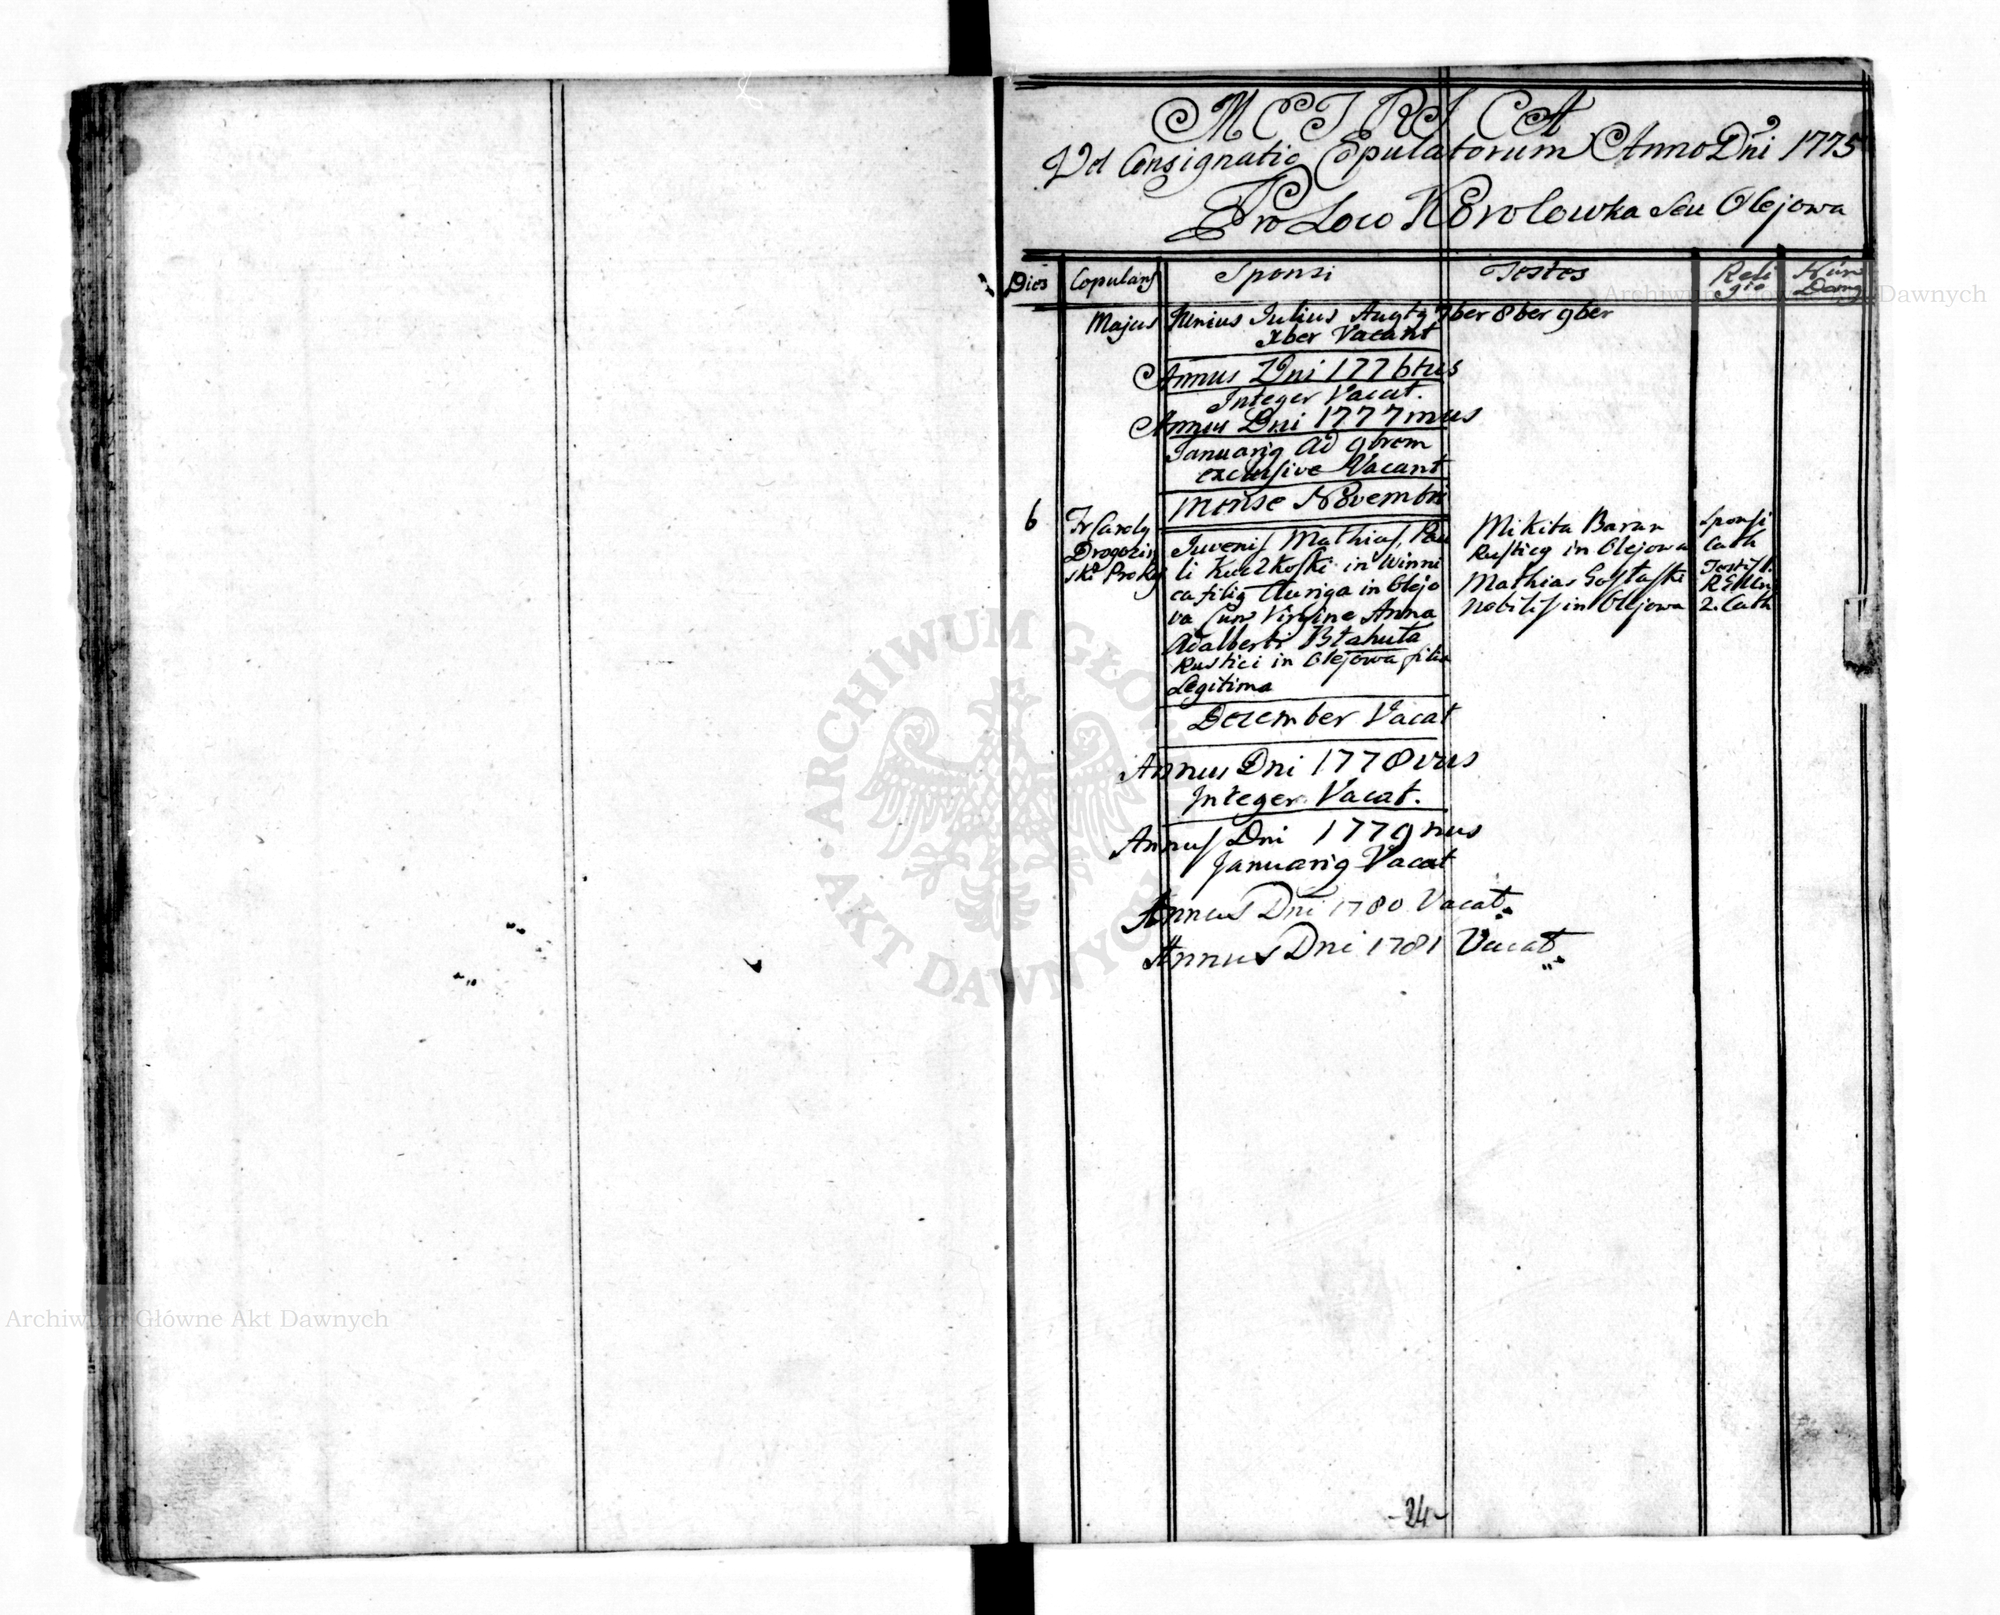 METRICA
Vel Consignatio Copulatorum Anno Dñi 1775
Pro Loco Korolowka Seu Olejowa
Dies Copulans Sponsi Testes Reli Nũn
gio Domq
Majus Junius Julius Augtq 7ber 8ber 9ber
Xber Vacant
Annus Dni 1776tus
Integer Vacat.
Annus Dni 1777mus
Januariq ad 9brem
exclusive Vacant
Mense Novembri
6
Fr Caroly
Drogozin
ski Prokq
Juvenis Mathias, Pau
li Kuczkoski in Winni
ca filiq Auriga in Olejo
va Cum Virgine Anna
Adalberti Błahuta
Rustici in Olejowa filia
Legitima
Mikita Baran
Rusticq in Olejowa
Mathias Gostaski
Nobilis in Olejowa
Sponsi
Cath
Testis 1.
2. Cath
December Vacat
Annus Dni 1778vus
Integer Vacat.
Annus Dni 1779nus
Januariq Vacat
Annus Dni 1780 Vacat.
Annus Dni 1781 Vacat
-24-
ARCHIWUM GŁÓWNE
AKT DAWNYCH
Archiwum Główne Akt Dawnych
Archiwum Główne Akt Dawnych